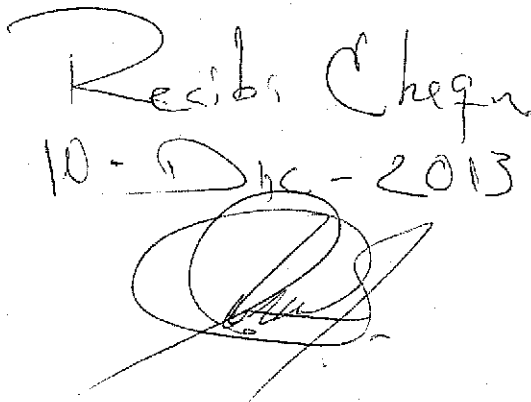 Recibi Cheque
10 - Dic - 2013